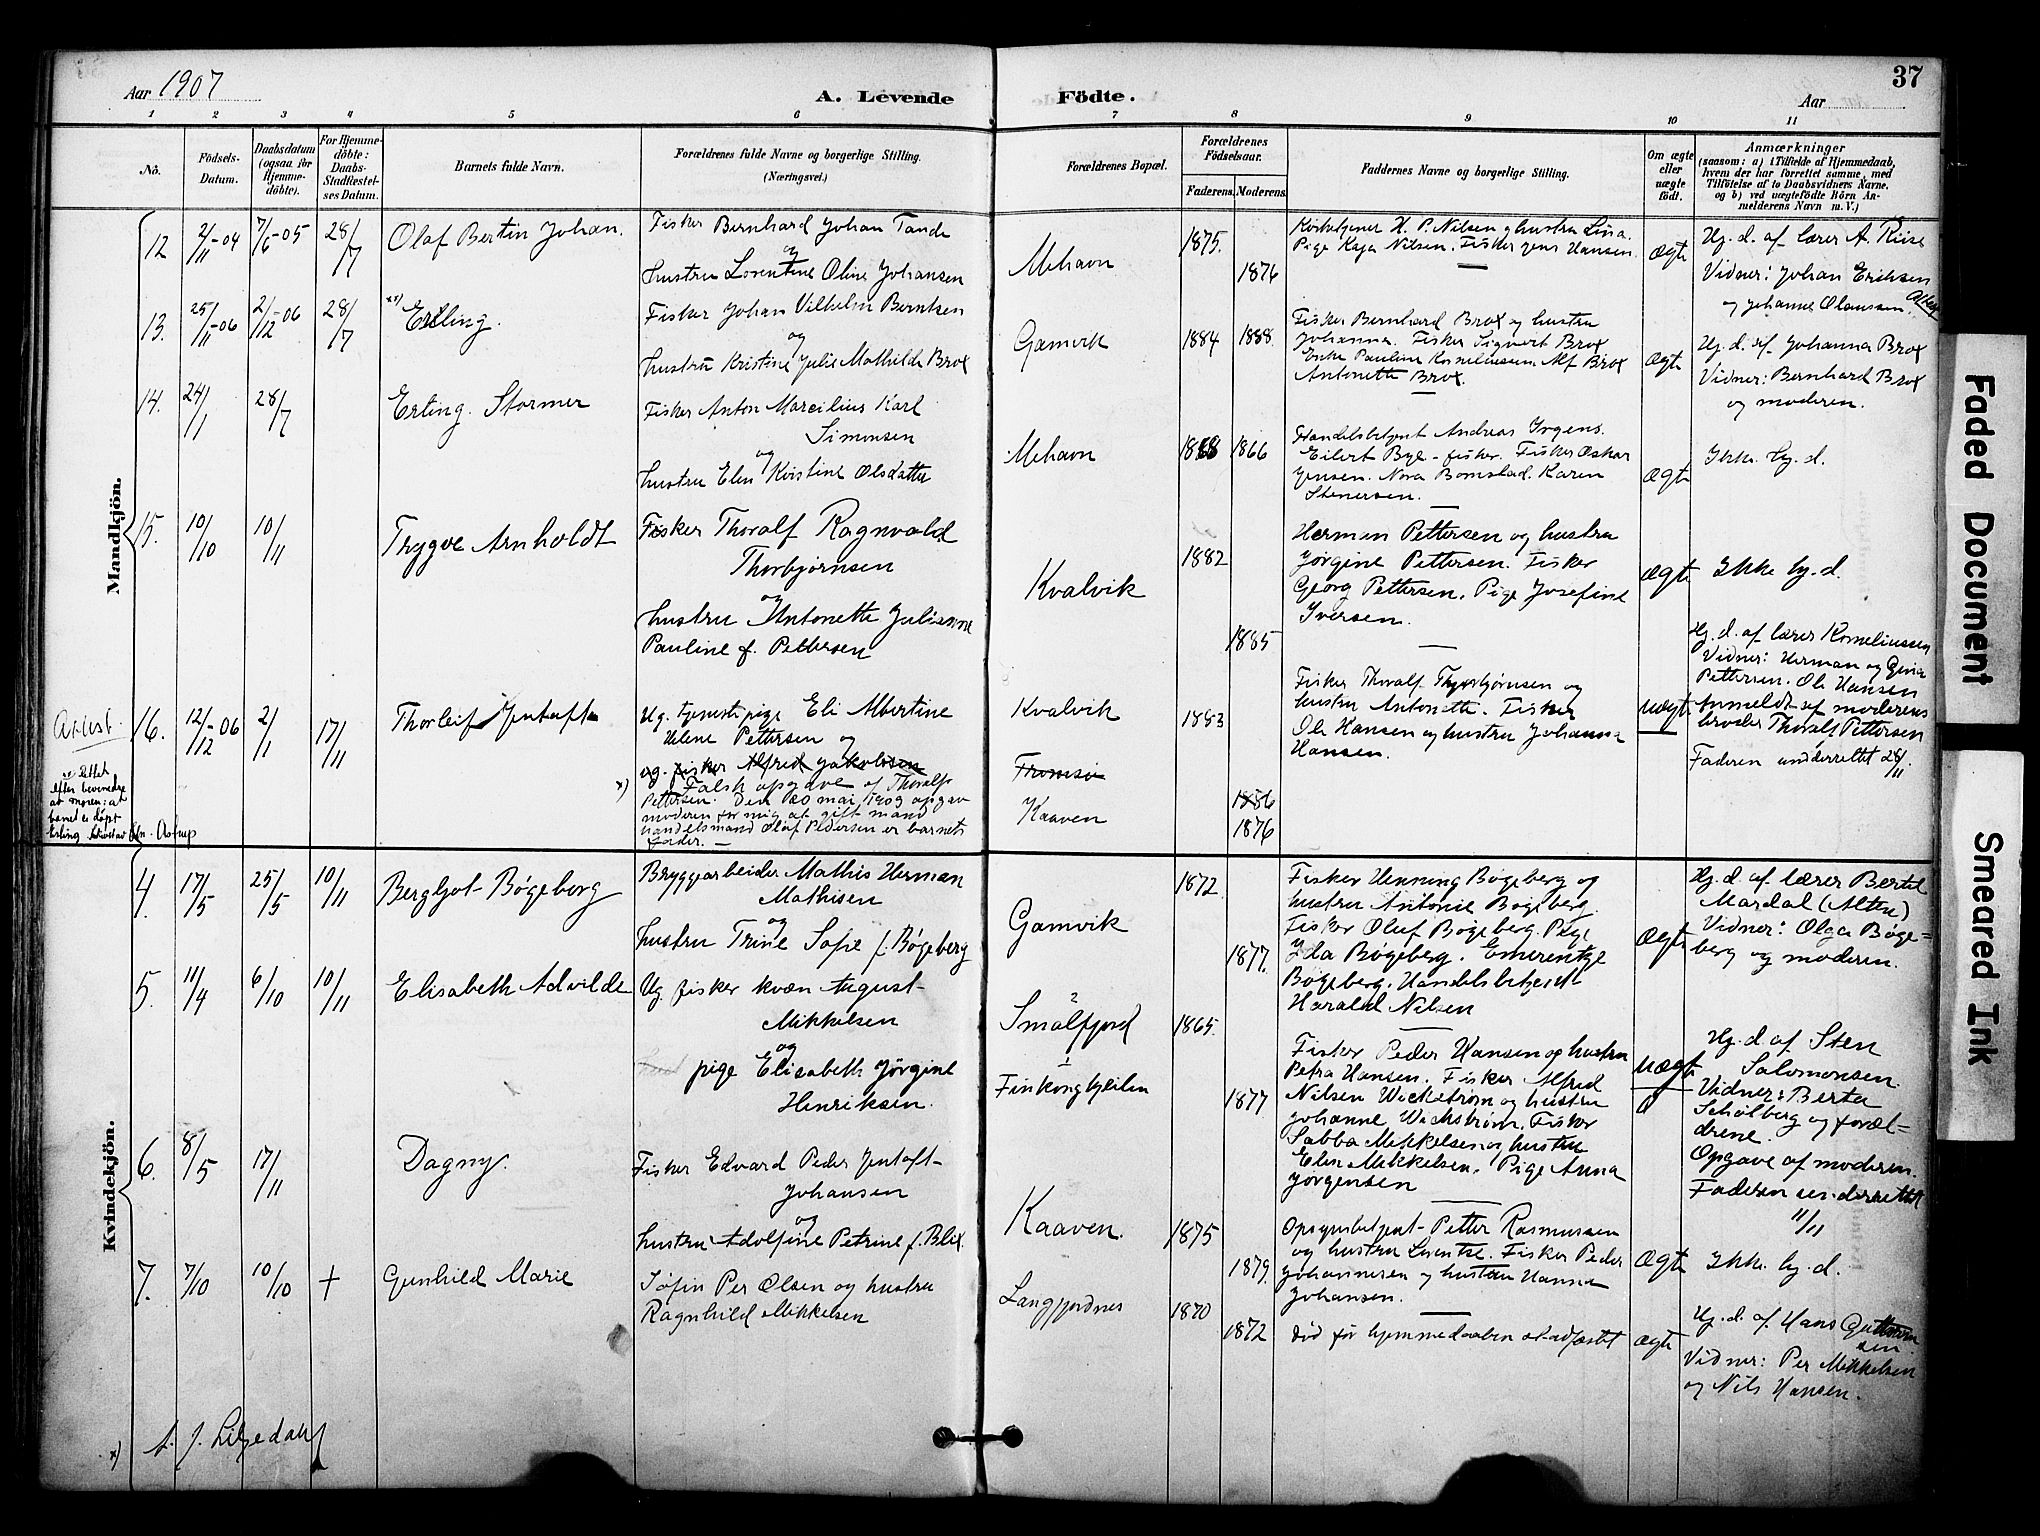 37
Aar 1907
A. Levende Födte.
Aar
1 2 3 4 5 6 7 8 9 10 11
No.
Födsels-Datum.
Daabsdatum (ogsaa for Hjemme-döbte).
For Hjemme-döbte: Daabs-Stadfæstel-ses Datum.
Barnets fulde Navn.
Forældrenes fulde Navne og borgerlige Stilling.
(Næringsvei.)
Forældrenes Bopæl.
Forældrenes Födselsaar.
Faderens. Moderens.
Faddernes Navne og borgerlige Stilling.
Om ægte eller uægte födt.
Anmærkninger
(saasom: a) i Tilfælde af Hjemmedaab,
hvem der har forrettet samme, med
Tilföielse af to Daabsvidners Navne,
og b) ved uægtefödte Börn An-
melderens Navn m. V.)
Mandkjön.
12 2/11-04 7/6-05 28/7 Olaf Bertin Johan.
Fisker Bernhard Johan Tande
og
hustru Lorentine Oline Johansen
Mehavn
1875.
1876
Kirketjener H. P. Nilsen og hustru Lina.
Pige Kaja Nilsen. Fisker Jens Hansen.
ægte
Hj. d. af lærer A. Riise
Vidner: Johan Eriksen
og Johanne Olaussen.
13. 25/11-06 2/12-06 28/7 Erling.
Fisker Johan Vilhelm Berntsen
og
hustru Kristine Julie Mathilde Brox
Gamvik
1884 1888
Fisker Bernhard Brox og hustru
Johanna. Fisker Sigvart Brox
Enke Pauline Korneliussen. Alf Brox
Antonette Brox.
ægte
Hj. d. af Johanna Brox
Vidner: Bernhard Brox
og moderen.
14. 24/1 28/7 Erling Stormer
Fisker Anton Marcilius Karl
Simonsen
og
hustru Elen Kristine Olsdatter
Mehavn
1866
Handelsbetjent Andreas Irgens.
Eilert Bye - fisker. Fisker Oskar
Jensen. Nora Bomstad. Karen
Stenersen.
ægte
Ikke hj. d.
15. 10/10 10/11 Trygve Arnholdt
Fisker Thoralf Ragnvald
Thorbjørnsen
og
hustru Antonette Julianne
Pauline f. Pettersen
Kvalvik
1882
1885
Herman Pettersen og hustru
Jørgine Pettersen. Fisker
Georg Pettersen. Pige Josefine
Iversen.
ægte
Ikke hj. d.
Attest.
16. 12/12-06 2/1 17/11 Thorleif Jentoft
Ug. tjenestepige Eli Albertine
Helene Pettersen og
ug. fisker Alfred Jakobsen
x) Falsk opgave af Thoralf
Pettersen. Den 20 mai 1909 opgav
moderen for mig at gift mand
handelsmand Olaf Pedersen er barnets
fader.
Kvalvik
Tromsø
Kaaven
1883
1886
1876
Fisker Thoralf Thorbjørnsen og
hustru Antonette. Fisker
Ole Hansen og hustru Johanna
Hansen.
uægte
Hj. d. af lærer Korneliussen
Vidner: Herman og Gina
Pettersen. Ole Hansen
Anmeldt af moderens
broder Thoralf Pettersen
Faderen underrettet 28/11.
Rettet
efter bevidnelse
at moren: at
barnet er døpt
Erling Astrup
Kvindekjön.
4. 17/5 25/5 10/11 Bergljot Bøgeberg
Bryggearbeider Mathis Herman
Mathisen
og
hustru Trine Sofie f. Bøgeberg
Gamvik
1872.
1877.
Fisker Henning Bøgeberg og
hustru Antonie Bøgeberg.
Fisker Oluf Bøgeberg. Pige
Ida Bøgeberg. Emerentze
Bøgeberg. Handelsbetjent
Harald Nilsen
ægte
Hj. d. af lærer Bertel
Mardal (Alten)
Vidner: Olga Bøge-
berg og moderen.
5. 11/4 6/10 10/11 Elisabeth Advilde
Ug. fisker kvæn August
Mikkelsen
og
pige Elisabeth Jørgine
Henriksen.
Smalfjord
Finkongkjeilen
1865.
1877
Fisker Peder Hansen og hustru
Petra Hansen. Fisker Alfred
Nilsen Wickstrøm og hustru
Johanne Wickstrøm. Fisker
Sabba Mikkelsen og hustru
Elen Mikkelsen. Pige Anna
Jørgensen
uægte
Hj. d. af Sten
Salomonsen.
Vidner: Berta
Schølberg og foræl-
drene.
Opgave af moderen.
Faderen underrettet
11/11
6. 8/5 17/11 Dagny.
Fisker Edvard Peder Jentoft
Johansen
og
hustru Adolfine Petrine f. Blix.
Kaaven.
1875
1879.
Opsynsbetjent Petter Rasmussen
og hustru Lorentse. Fisker Peder
Johannesen og hustru Hanna
Johansen.
ægte
Ikke hj. d.
7. 7/10 10/10 + Gunhild Marie
Søfin Per Olsen og hustru
Ragnhild Mikkelsen
Langfjordnes
1870
1872
Død før hjemmedaaben stadfæstet
ægte
Hj. d. af Hans Guttorm
sen
Vidner: Per Mikkelsen
og Nils Hansen.
x) A. J. Liljedahl
Faded Document
Smeared Ink